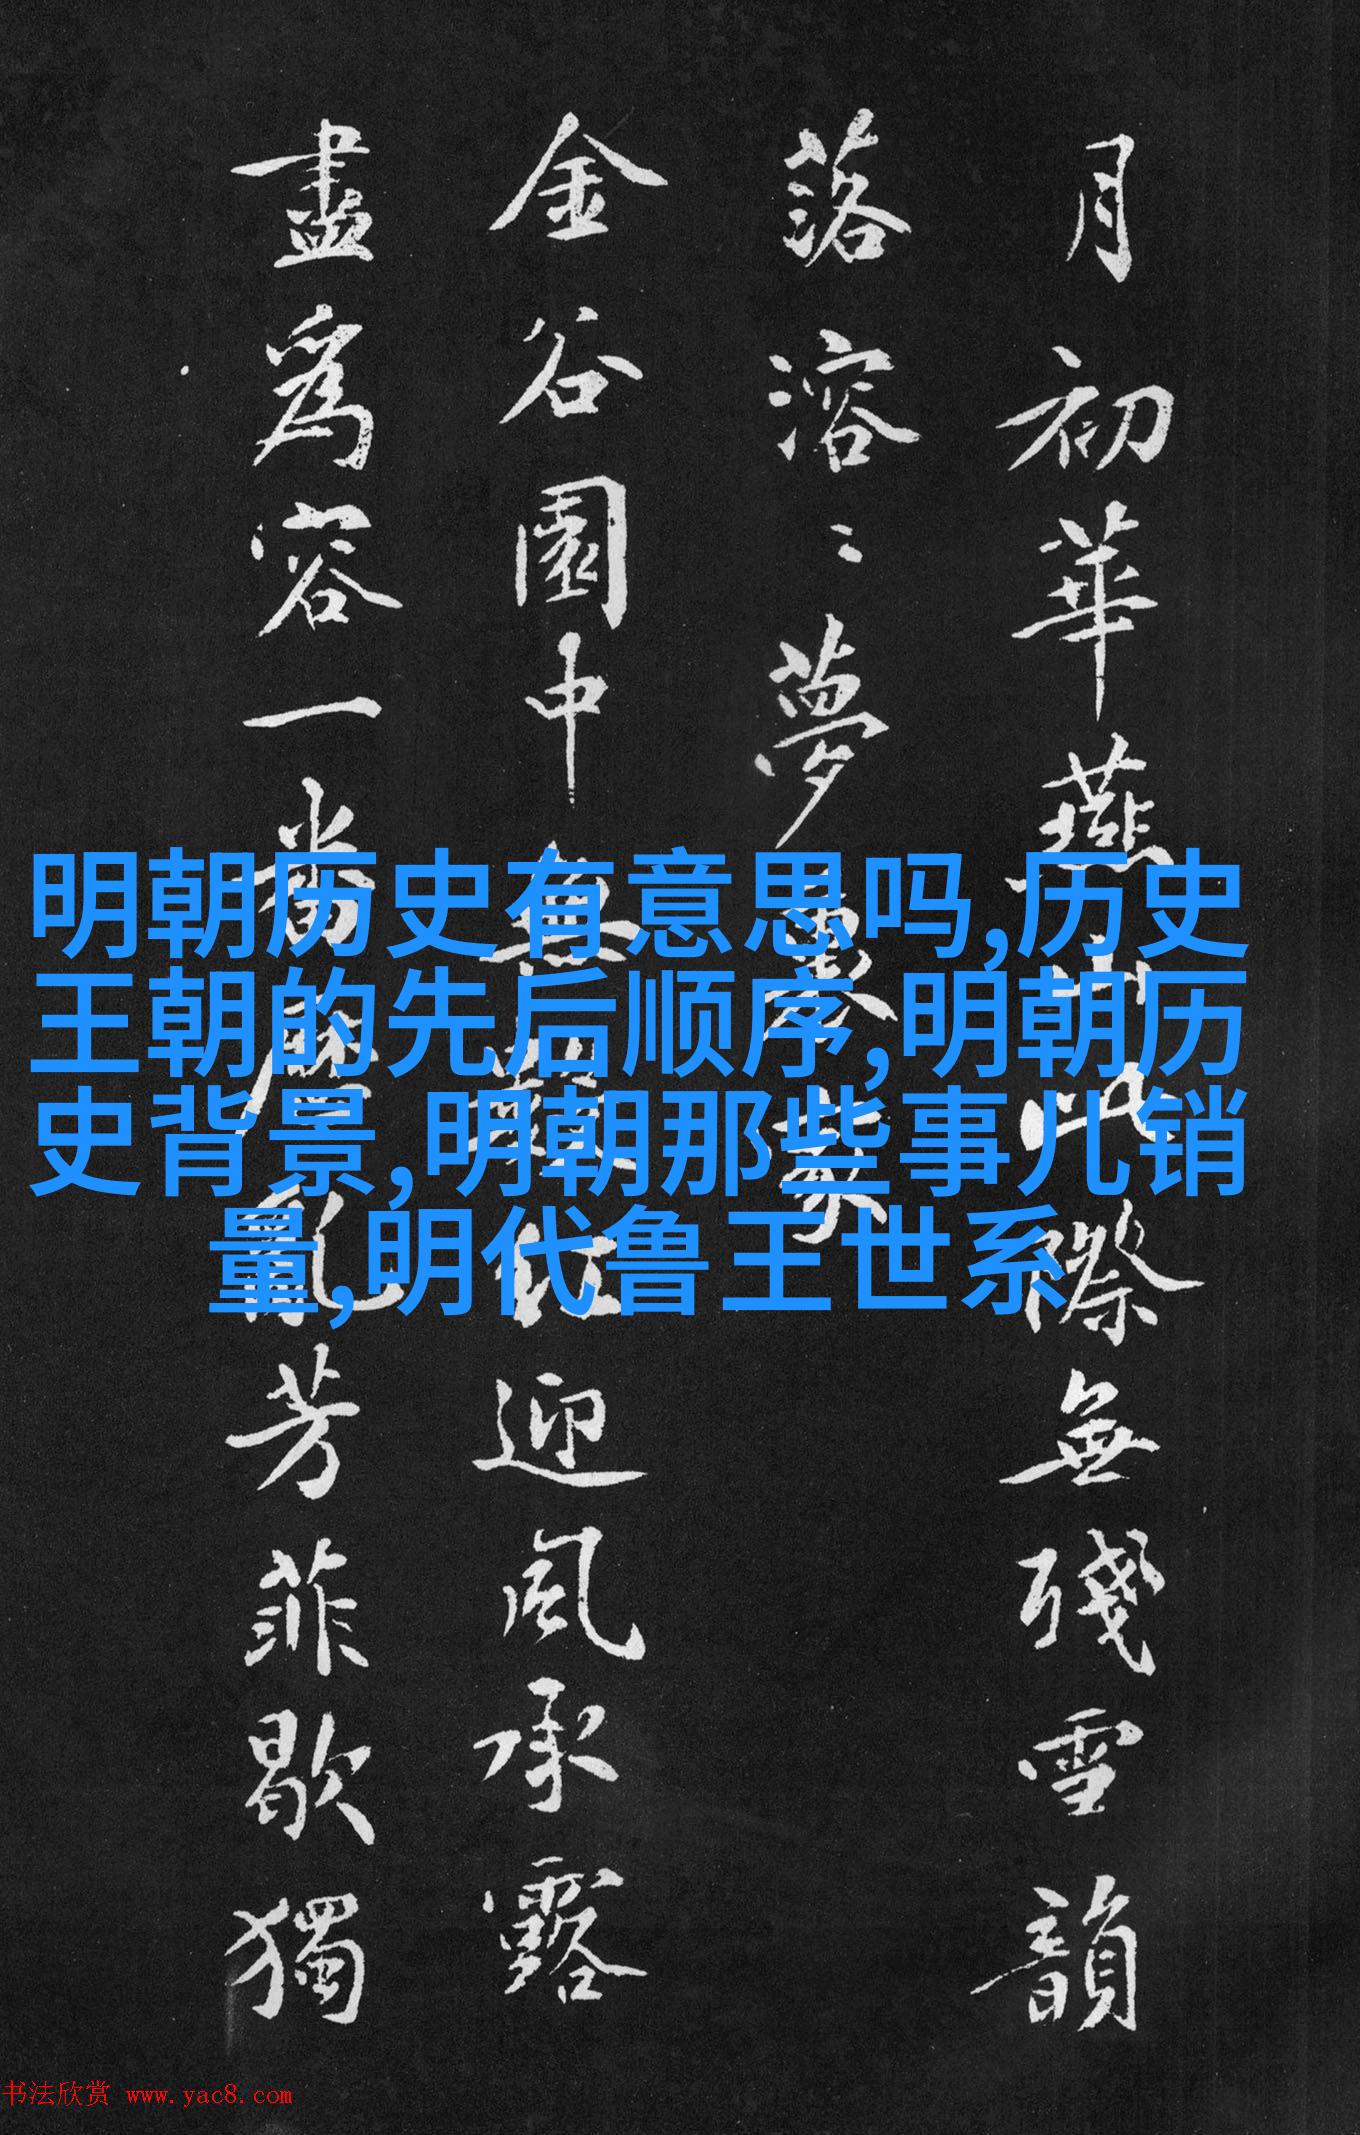 月初華燕山此際無殘雪韻
落溶〻夢裏蒙
金谷園中無数红迎風承露
盡為容一番歷亂芳菲歇獨
明朝历史有意思吗,历史
王朝的先后顺序,明朝历
史背景,明朝那些事儿销
量,明代鲁王世系
书法欣赏 www.yac8.com